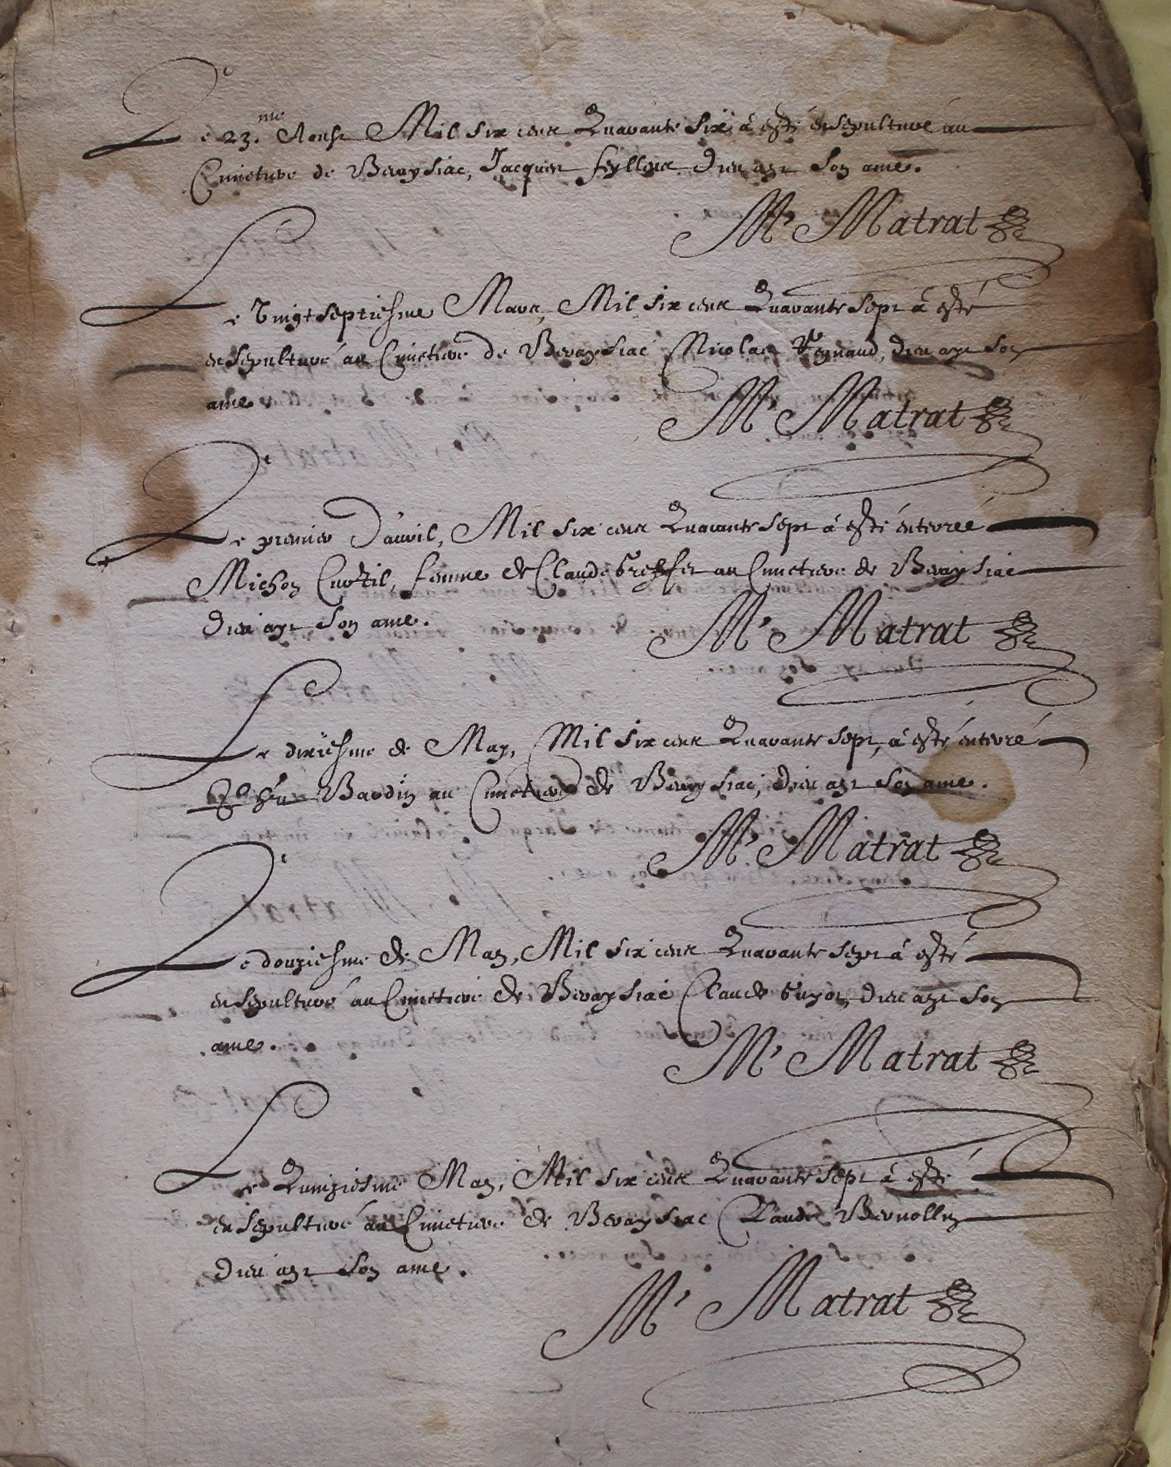 Le 23.me Aoust Mil six cens Quarante six à esté ensepulturé au
Cimetiere de Beraysiac, Jacques dieu aye son ame.
Mr Matrat
Le Vingt septiesme Mars, Mil six cens Quarante sept à esté
ensepulturé au Cimetiere de Beraysiac Nicolas Regnaud, dieu aye son
ame.
Mr Matrat
Le premier D'auril, Mil six cens Quarante sept à esté enterreé
Michon Curtil, femme de Claude au Cimetiere de Beraysiac
dieu aye son ame.
Mr Matrat
Le dixiesme de May, Mil six cens Quarante sept, à esté enterré
Bardin au Cimetiere de Beraysiac, dieu aye son ame.
Mr Matrat
Le douziesme de May, Mil six cens Quarante sept à esté
ensepulturé au Cimetiere de Beraysiac Claude Guyot, dieu aye son
ame.
Mr Matrat
Le Quinziesme May, Mil six cens Quarante sept à esté
ensepulturé au Cimetiere de Beraysiac Claude
dieu aye son ame.
Mr Matrat